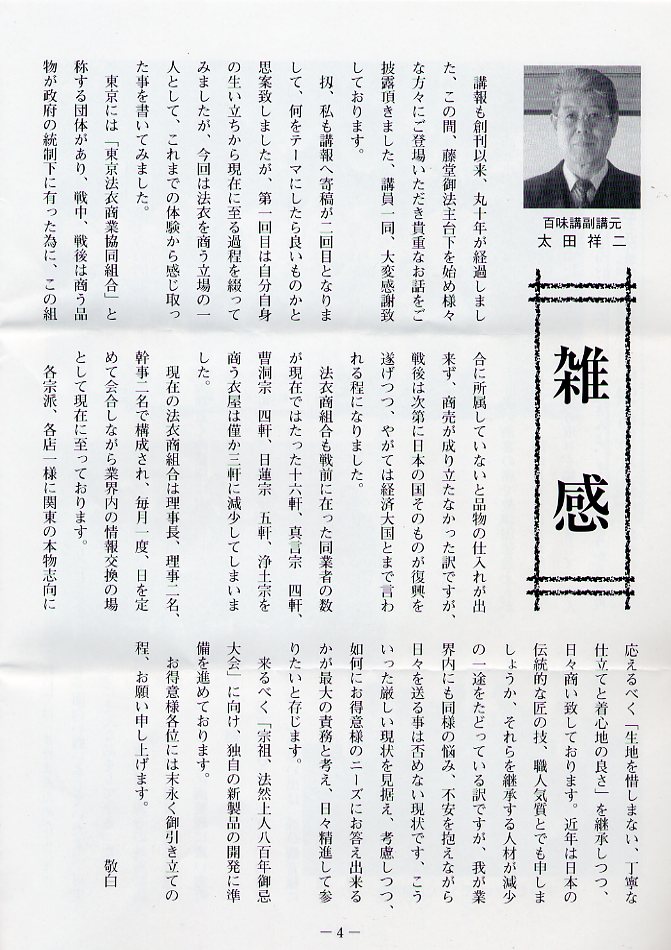 百味講副講元
太田祥二
雑感
講報も創刊以来、丸十年が経過しまし
た、この間、藤堂御法主台下を始め様々
な方々にご登場いただき貴重なお話をご
披露頂きました、講員一同、大変感謝致
しております。
扨、私も講報へ寄稿が二回目となりま
して、何をテーマにしたら良いものかと
思案致しましたが、第一回目は自分自身
の生い立ちから現在に至る過程を綴って
みましたが、今回は法衣を商う立場の一
人として、これまでの体験から感じ取っ
た事を書いてみました。
東京には「東京法衣商業協同組合」と
称する団体があり、戦中、戦後は商う品
物が政府の統制下に有った為に、この組
合に所属していないと品物の仕入れが出
来ず、商売が成り立たなかった訳ですが、
戦後は次第に日本の国そのものが復興を
遂げつつ、やがては経済大国とまで言わ
れる程になりました。
法衣商組合も戦前に在った同業者の数
が現在ではたった十六軒、真言宗 四軒、
曹洞宗 四軒、日蓮宗 五軒、浄土宗を
商う衣屋は僅か三軒に減少してしまいま
した。
現在の法衣商組合は理事長、理事二名、
幹事二名で構成され、毎月一度、日を定
めて会合しながら業界内の情報交換の場
として現在に至っております。
各宗派、各店一様に関東の本物志向に
応えるべく「生地を惜しまない、丁寧な
仕立てと着心地の良さ」を継承しつつ、
日々商い致しております。近年は日本の
伝統的な匠の技、職人気質とでも申しま
しょうか、それらを継承する人材が減少
の一途をたどっている訳ですが、我が業
界内にも同様の悩み、不安を抱えながら
日々を送る事は否めない現状です、こう
いった厳しい現状を見据え、考慮しつつ、
如何にお得意様のニーズにお答え出来る
かが最大の責務と考え、日々精進して参
りたいと存じます。
来るべく「宗祖、法然上人八百年御忌
大会」に向け、独自の新製品の開発に準
備を進めております。
お得意様各位には末永く御引き立ての
程、お願い申し上げます。
敬白
― 4 ―